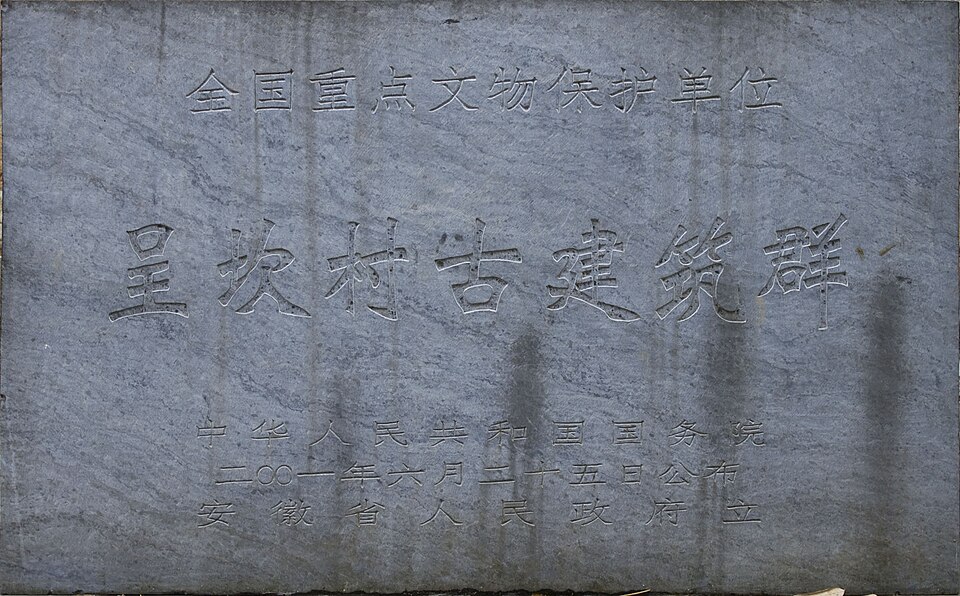 全国重点文物保护单位
呈坎村古建筑群
中华人民共和国国务院
二〇〇一年六月二十五日公布
安徽省人民政府立